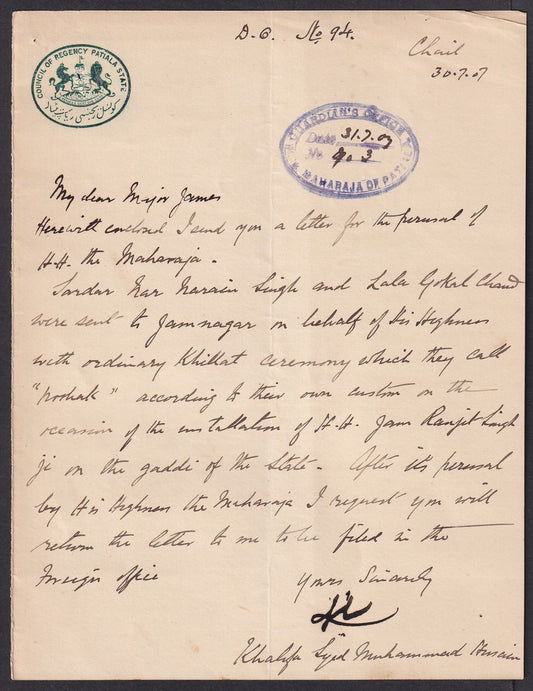 D.O. No 94.
COUNCIL OF REGENCY PATIALA STATE
کونسل ریجنسی ریاست پٹیالہ
Chail
30.7.07
GUARDIAN'S OFFICE
Date 31.7.07
No 3
MAHARAJA OF PATI
My dear Major James
Herewith enclosed I send you a letter for the perusal of
H.H. the Maharaja.
Sardar Nar Narain Singh and Lala Gokal Chand
were sent to Jamnagar on behalf of His Highness
with ordinary Khillat ceremony which they call
"poshak" according to their own custom on the
occasion of the installation of H.H. Jam Ranjit Singh
ji on the gaddi of the State. After its perusal
by His Highness the Maharaja I request you will
return the letter to me to be filed in the
Foreign office
Yours Sincerely
Khalifa Syed Muhammad Husain